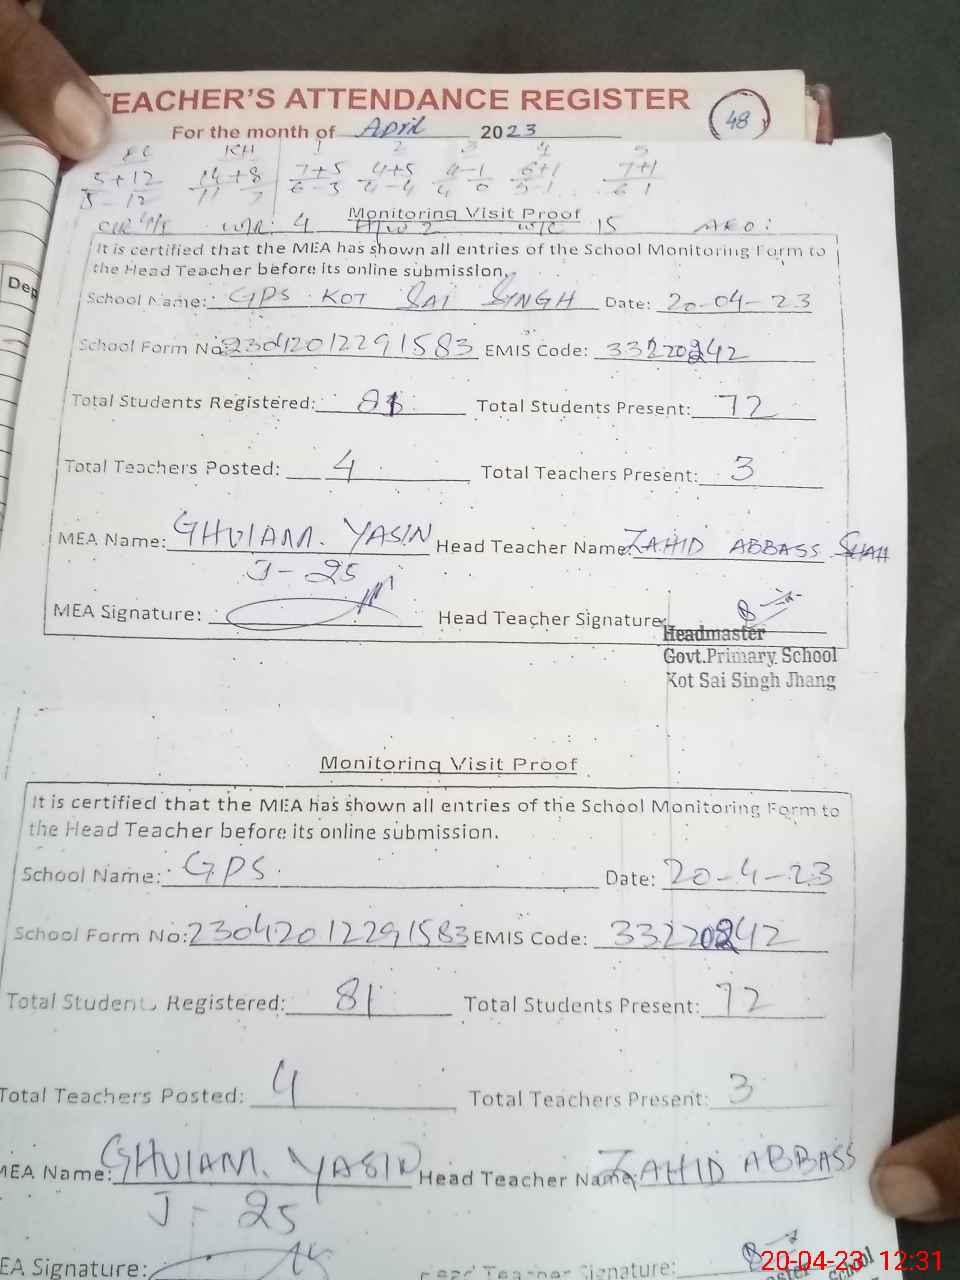 TEACHER'S ATTENDANCE REGISTER
48
For the month of April 2023
KH 1 2 3 4 5
5+12 14+8 7+5 4+5 4-1 6+1 7+1
5-12 11 7 6-3 4-4 4 0 5-1 6 1
Monitoring Visit Proof
4 15 AEO:
It is certified that the MEA has shown all entries of the School Monitoring Form to
the Head Teacher before its online submission.
School Name: GPS KOT SAI SINGH Date: 20-04-23
School Form No: 23042012291583 EMIS Code: 33220242
Total Students Registered: 81 Total Students Present: 72
Total Teachers Posted: 4 Total Teachers Present: 3
MEA Name: GHULAM. YASIN Head Teacher Name: ZAHID ABBASS SHAH
J-25
MEA Signature: Head Teacher Signature:
Headmaster
Govt.Primary School
Kot Sai Singh Jhang
Monitoring Visit Proof
It is certified that the MEA has shown all entries of the School Monitoring Form to
the Head Teacher before its online submission.
School Name: GPS Date: 20-4-23
School Form No: 23042012291583 EMIS Code: 33220242
Total Students Registered: 81 Total Students Present: 72
Total Teachers Posted: 4 Total Teachers Present: 3
MEA Name: GHULAM. YASIN Head Teacher Name: ZAHID ABBASS
J-25
EA Signature: Head Teacher Signature:
master School
20-04-23 12:31
Dep